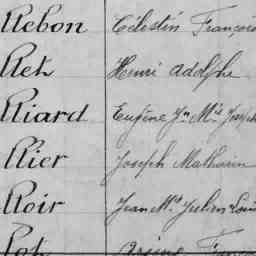 Rebon Célestin François
Ret Henri Adolphe
Riard Eugène Jn Mie Joseph
Rier Joseph Mathurin
Roir Jean Mie Julien Louis